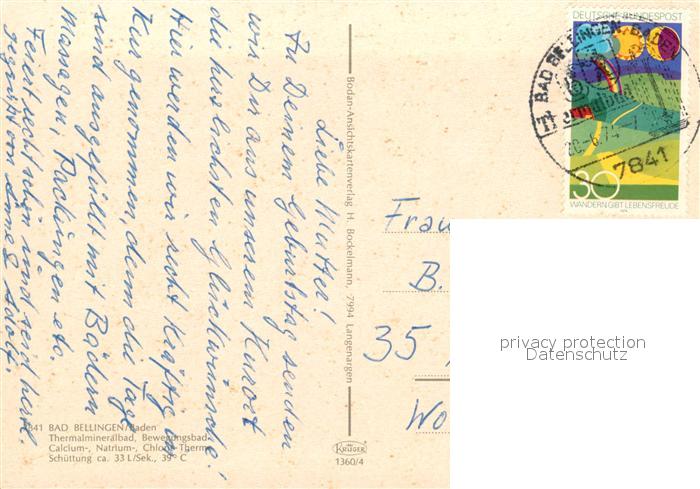 Liebe Mutter!
Zu Deinem Geburtstag senden
wir Dir aus unserem Kurort
die herzlichsten Glückwünsche!
Hier werden wir recht kräftig in
Kur genommen, denn die Tage
sind ausgefüllt mit Bädern
Massagen, Packungen etc.
Feiert recht schön und seid herzl.
gegrüßt von & Adolf.
841 BAD BELLINGEN/Baden
Thermalmineralbad, Bewegungsbad
Calcium-, Natrium-, Chlorid-Therme
Schüttung ca. 33 L/Sek., 39° C
Bodan-Ansichtskartenverlag H. Bockelmann, 7994 Langenargen
KRÜGER
1360/4
DEUTSCHE BUNDESPOST
30
WANDERN GIBT LEBENSFREUDE
BAD BELLINGEN, BADEN
7841
Frau
B.
35
Wo
privacy protection
Datenschutz